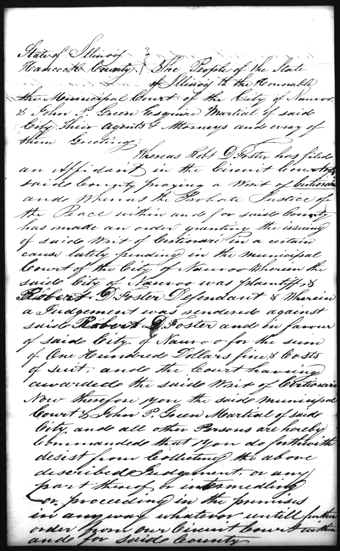 State of Illinois
Hancock County } The People of the State
of Illinois to the Honorable
the Municipal Court of the City of Nauvoo
& John P. Green Esquire Martial of said
City Their Agents & Attorneys and evry of
them Greeting
Whereas Robt D. Foster has filed
an Affidavit in the Circuit Court of
said County praying a Writ of Certiorari
and Whereas the Probate Justice of
the Peace within and for said County
has made an order granting the issuing
of said Writ of Certiorari in a certain
cause lately pending in the Municipal
Court of the City of Nauvoo Wherein the
said City of Nauvoo was plaintiff &
Robert D Foster Defendant & Wherein
a Judgement was rendered against
said Robert D Foster and in favour
of said City of Nauvoo for the sum
of One Hundred Dollars fine & Costs
of suit. and the Court having
awarded the said Writ of Certiorari
Now therefore you the said Municipal
Court & John P. Green Martial of said
City, and all other Persons are hereby
Commanded that you do forthwith
desist from Collecting the above
described Judgment or any
part thereof, or intermedling
or, proceeding in the premises
in any way whatever untill further
order from our Circuit Court within
and for said County